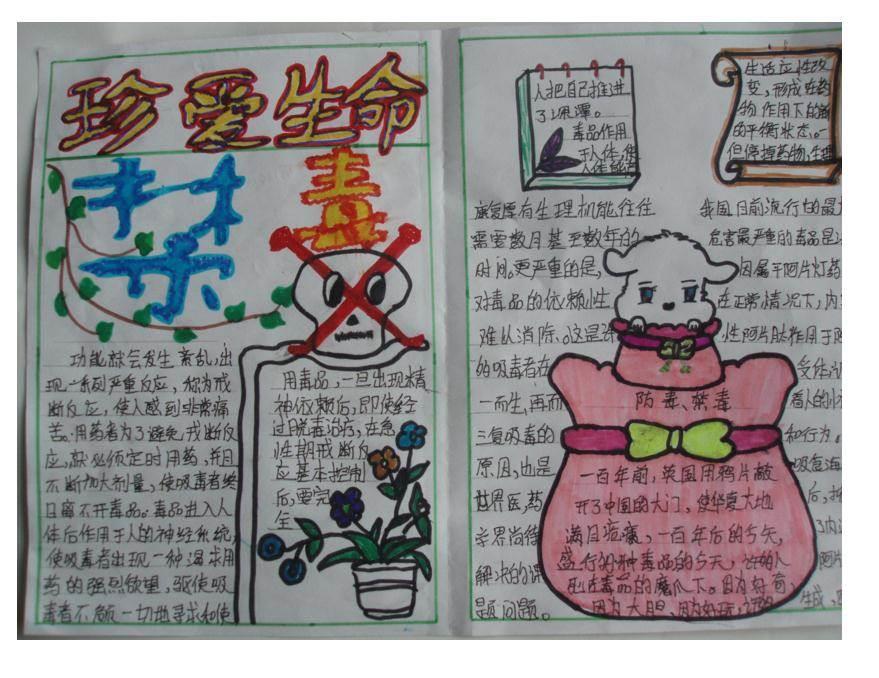 珍爱生命
禁毒
功能就会发生紊乱,出
现一系列严重反应,称为戒
断反应,使人感到非常痛
苦。用药者为了避免戒断反
应,就必须定时用药,并且
不断加大剂量,使吸毒者终
日离不开毒品。毒品进入人
体后作用于人的神经系统,
使吸毒者出现一种渴求用
药的强烈欲望,驱使吸
毒者不顾一切地寻求和使
用毒品,一旦出现精
神依赖后,即使经
过脱毒治疗,在急
性期戒断反
应基本控制
后,要完
全
人把自己推进
了深潭。
毒品作用
于人体,使
人体能
康复原有生理机能往往
需要数月甚至数年的
时间。更严重的是,
对毒品的依赖性
难以消除。这是许
的吸毒者在
一而生,再而
三复吸毒的
原因,也是
世界医药
学界尚待
解决的课
题问题。
生活应性改
变,形成在药
物作用下的新
的平衡状态。
但停掉药物,生理
我国目前流行的最
危害最严重的毒品是
因属于阿片
在正常情况下,内
性阿片肽作用于阿
受体
着人的
和行为。
吸食海
后,
了内
阿片
生成,
防毒、禁毒
一百年前,英国用鸦片敲
开了中国的大门,使华夏大地
满目疮痍,一百年后的今天,
盛行的种毒品的今天,
毒品的魔爪下。因为好奇,
因为大胆,因为好玩,